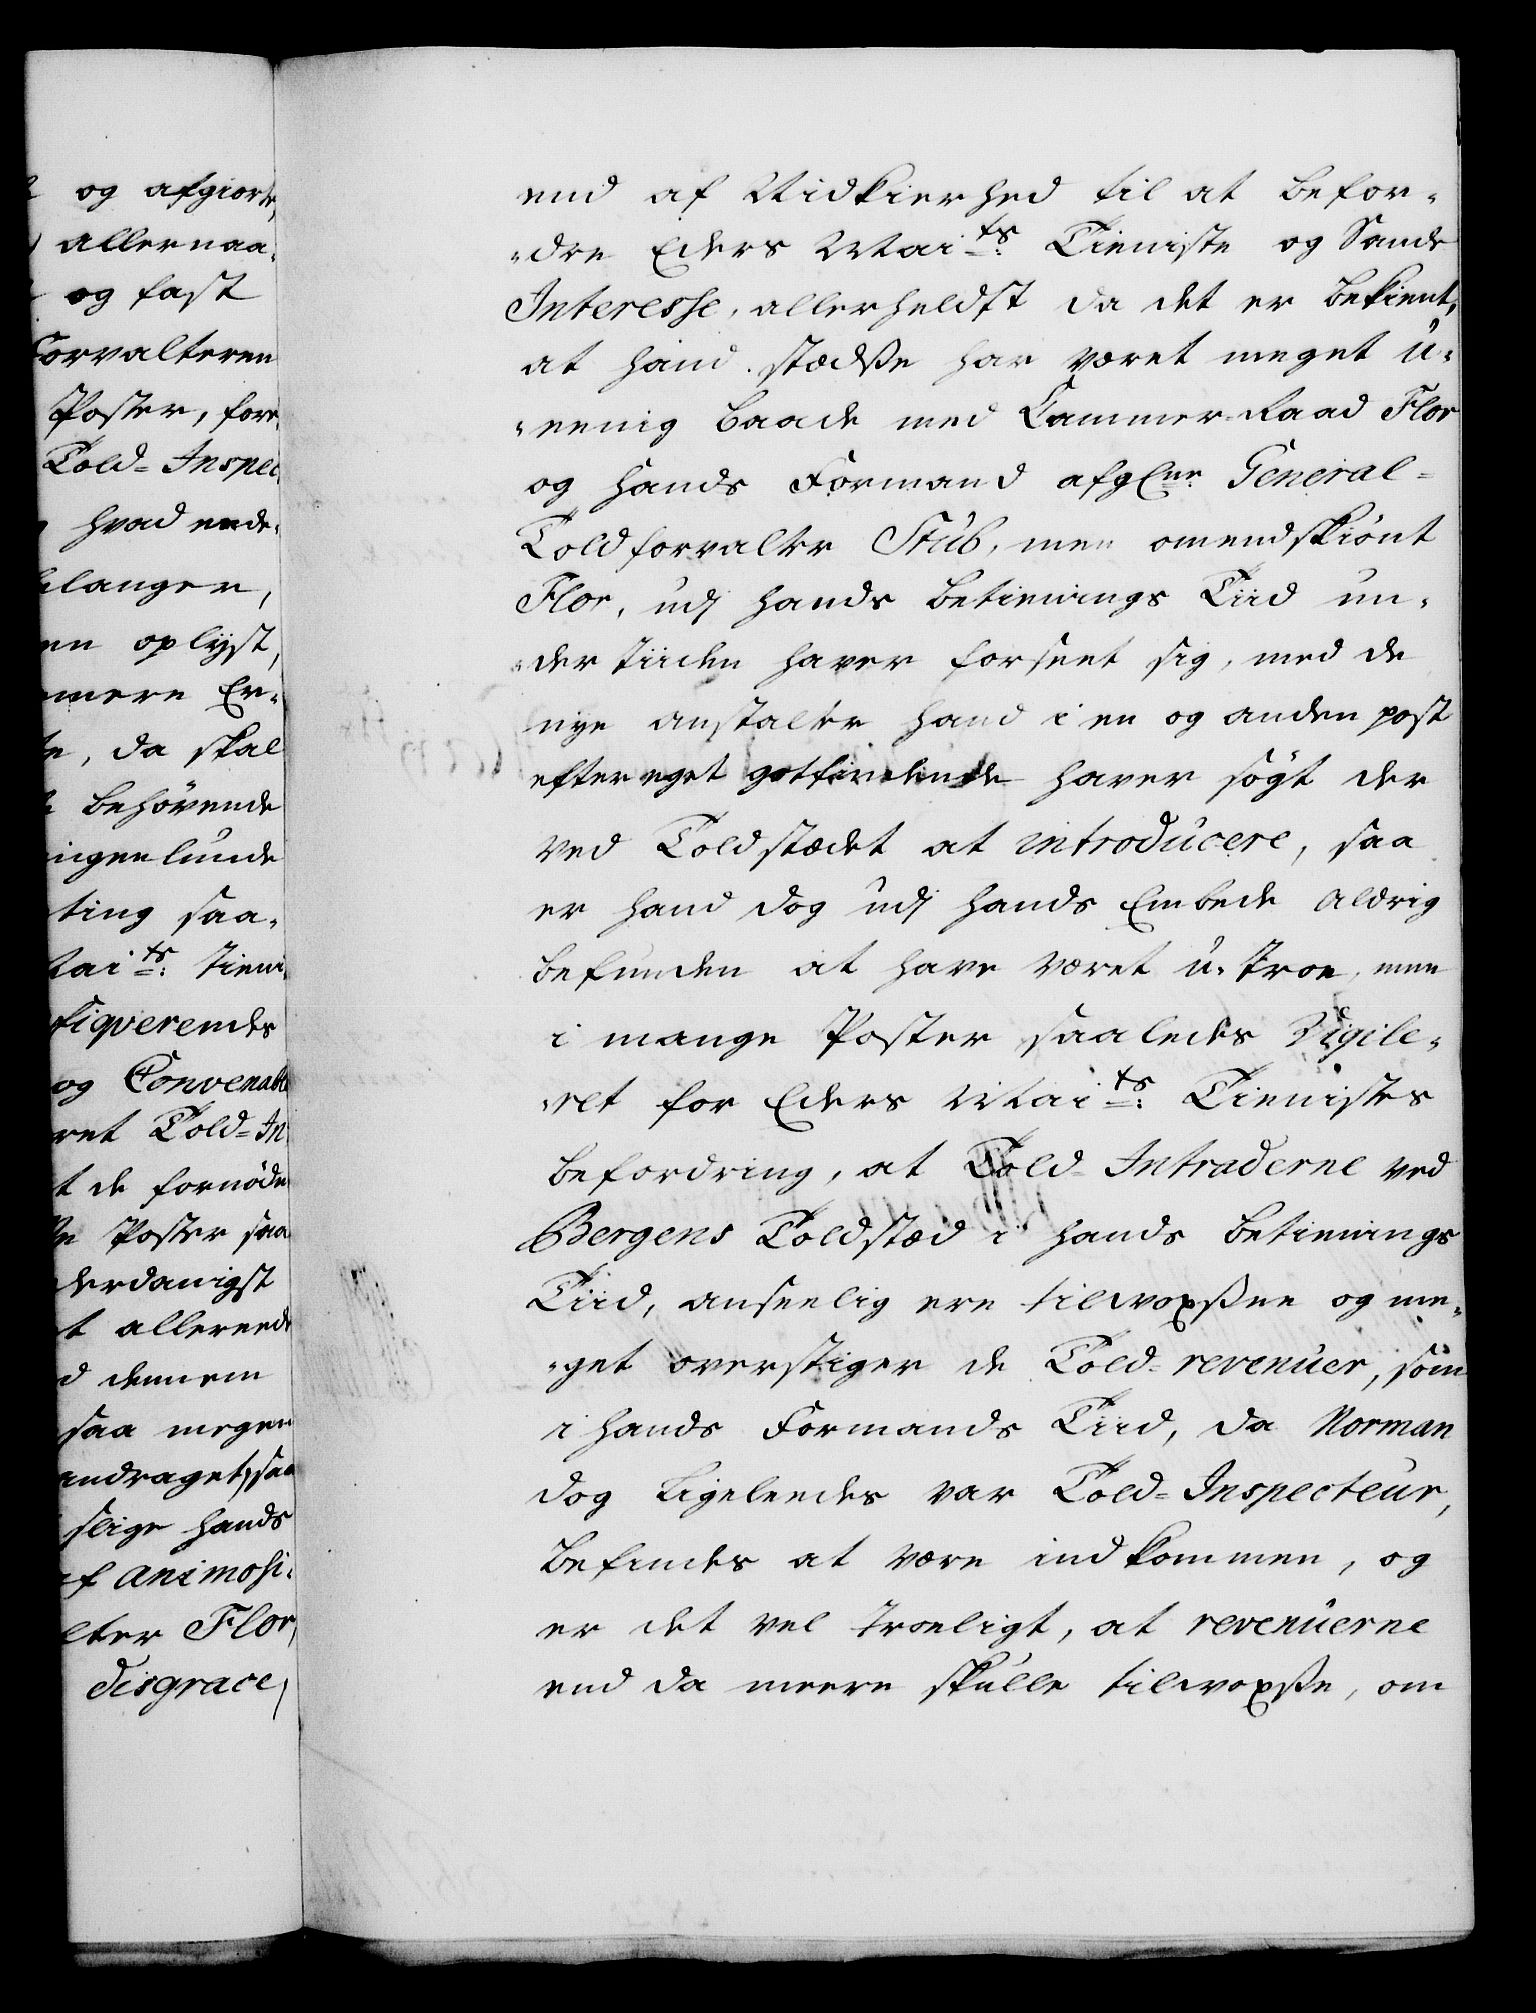 og afgiorte,
allernaa-
og fast
Forvalteren
Poster, fore-
Told-Inspec
hvad ende-
langer,
en oplyst,
mere Er-
te, da skal
behövende
ingenlunde
ting saa-
Mai^ts: Tieni-
fiqverendes
og Convenable
ret Told-In
t de fornödne
Poster saa
derdanigst
t allereede
d dennem
saa megen
andraget, saa
slige hands
af animosi-
lter Flor,
disgrace,
end af Nidkierhed til at befor-
-dre Eders Mai^ts: Tieniste og Sande
Interesse, allerheldst da det er bekient,
at hand stædße har været meget u-
-eenig baade med Cammer-Raad Flor
og hands Formand afg^ne General-
Toldforvalter Stub, men omendskiönt
Flor, udj hands betienings Tiid un-
-der tiiden haver forseet sig, med de
nye anstalter hand i en og anden post
efter eget gotfindende haver sögt der
ved Toldstædet at introducere, saa
er hand dog udj hands Embede aldrig
befunden at have været u-troe, men
i mange Poster saaledes Vigile-
-ret for Eders Mai^ts: Tienistes
befordring, at Told-Intraderne ved
Bergens Toldstæd i hands betienings
Tiid, anseelig ere tilvoxßne og me-
-get overstiger de Told-revenuer, som
i hands Formands Tiid, da Norman
dog ligeleedes var Told-Inspecteur,
befindes at være indkommen, og
er det vel troeligt, at revenuerne
end da meere skulle tilvoxße, om